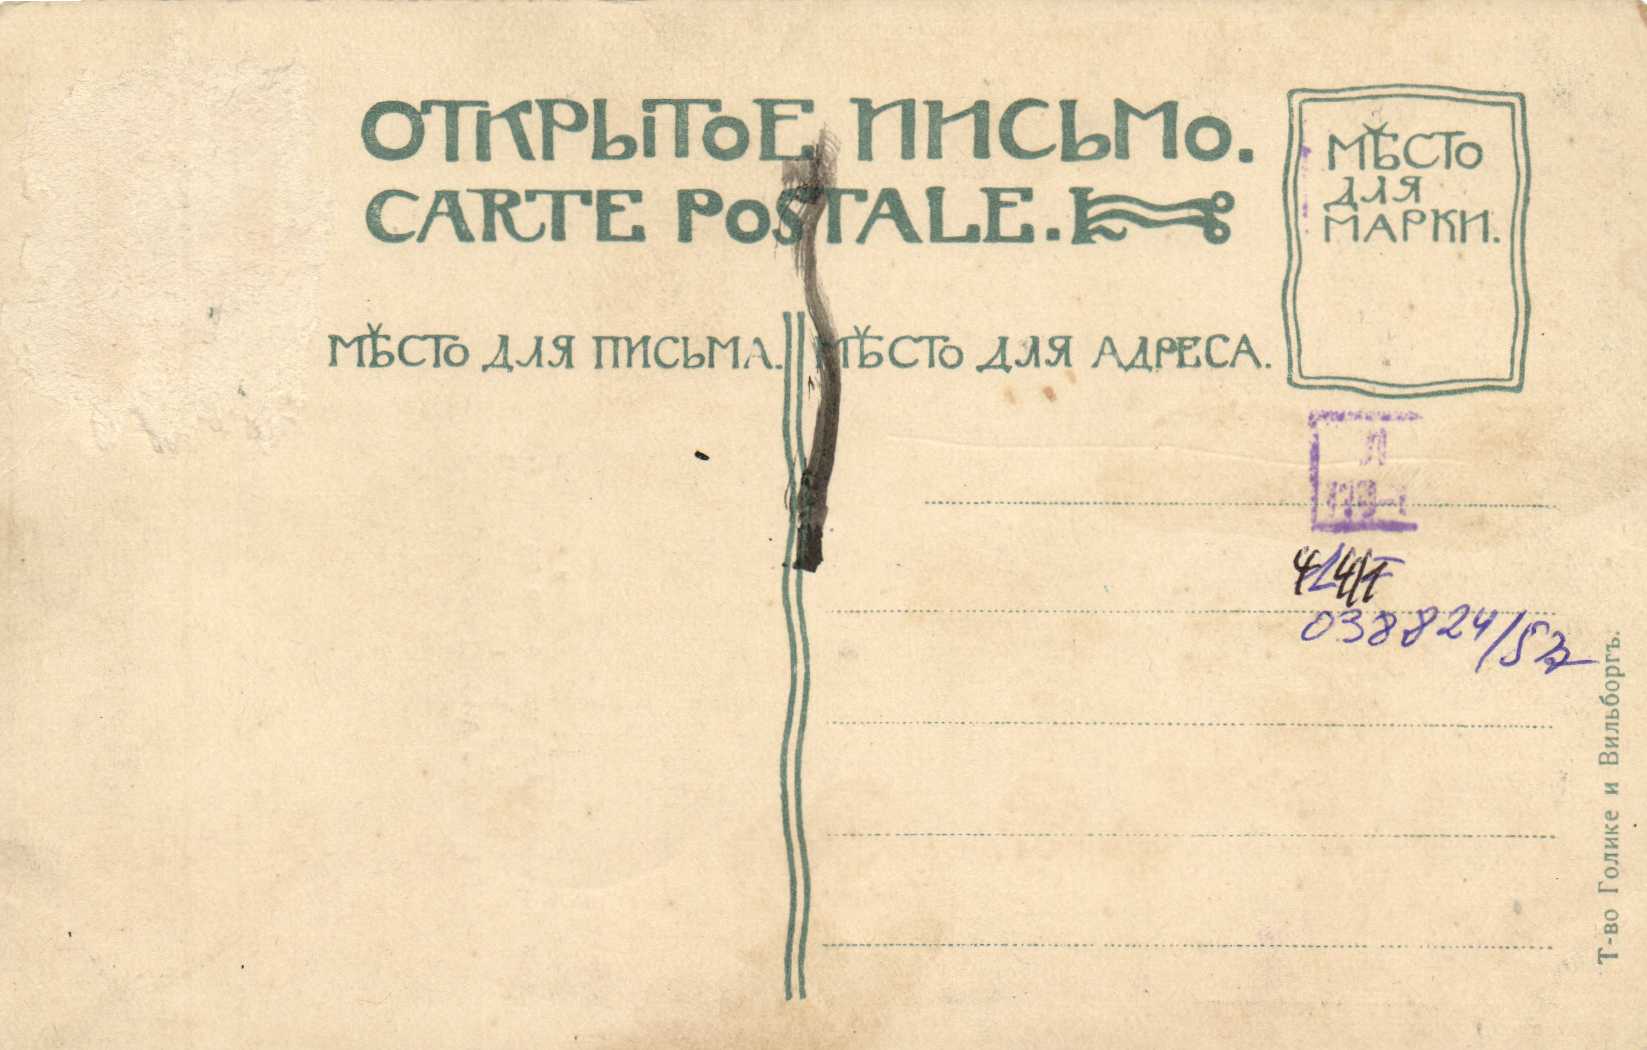 ОТКРЫТОЕ ПИСЬМО.
CARTE POSTALE.
МѢСТО
ДЛЯ
МАРКИ.
МѢСТО ДЛЯ ПИСЬМА.
МѢСТО ДЛЯ АДРЕСА.
038824/53
Т-во Голике и Вильборгъ.